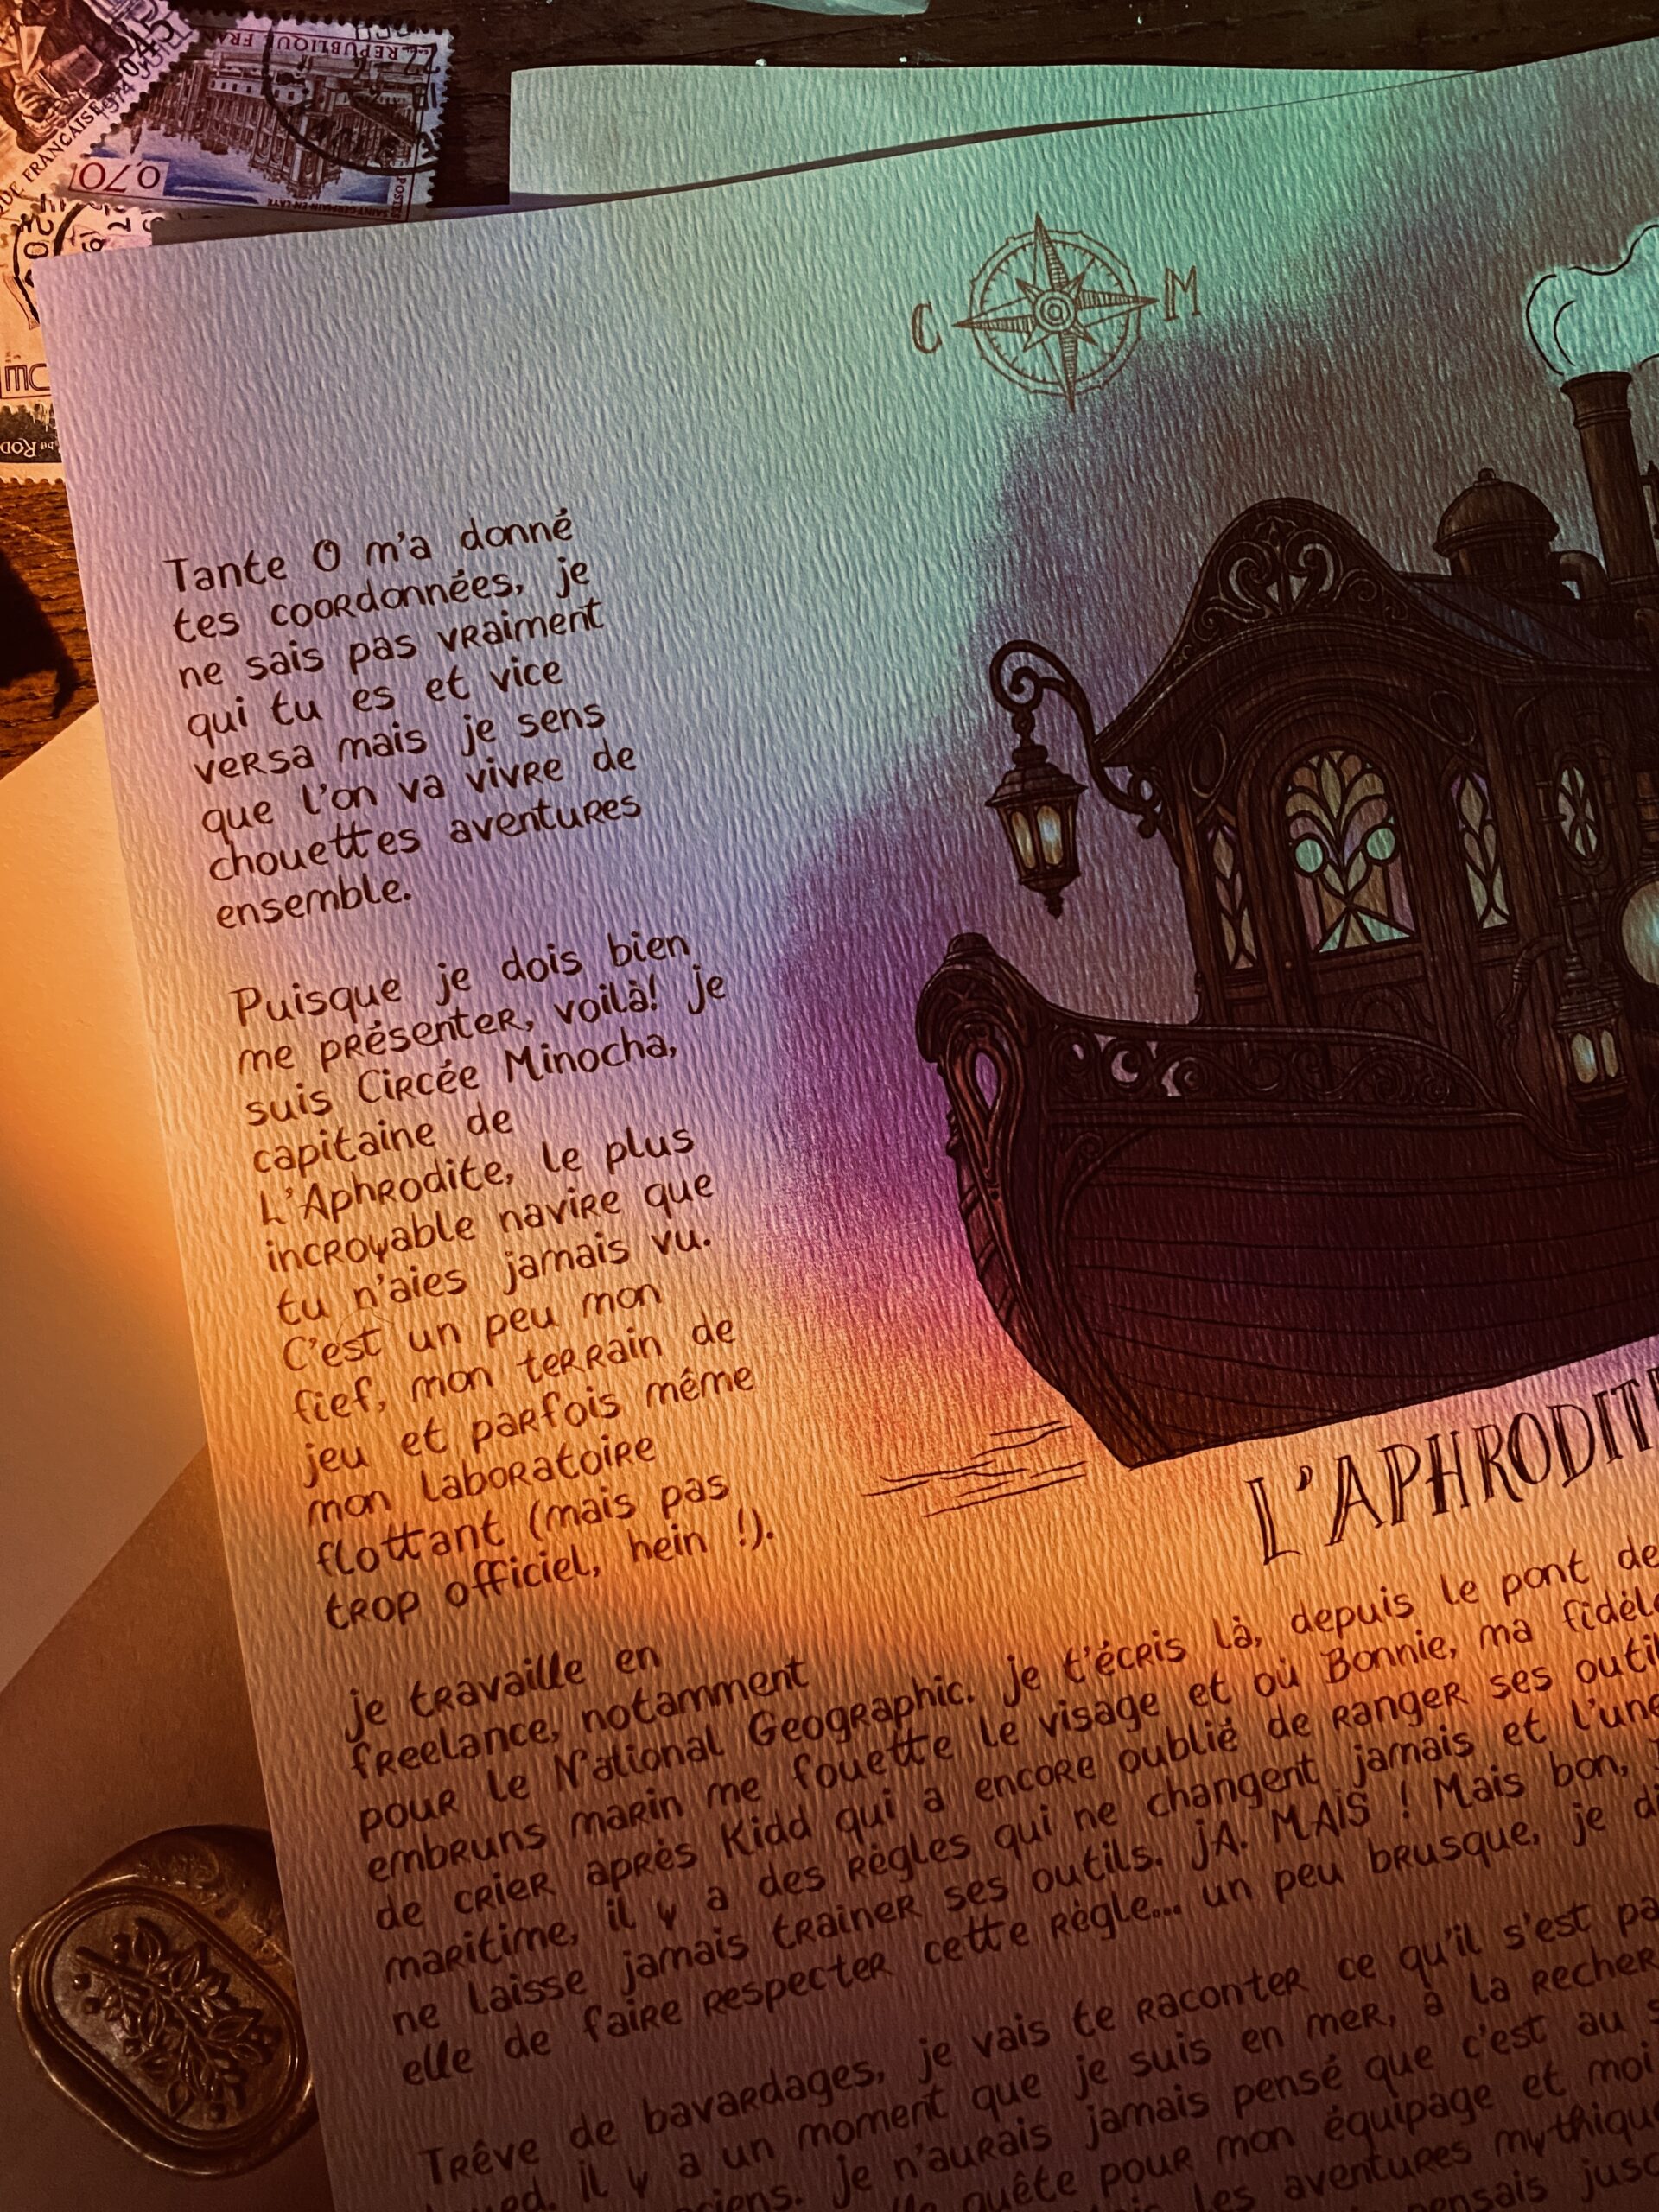 RÉPUBLIQUE FRAN
0,70
POSTES
SAINT-GERMAIN-EN-LAYE
0,45
1974
QUE FRANÇAISE
C M
Tante O m'a donné
tes coordonnées, je
ne sais pas vraiment
qui tu es et vice
versa mais je sens
que l'on va vivre de
chouettes aventures
ensemble.
Puisque je dois bien
me présenter, voilà! je
suis Circée Minocha,
capitaine de
L'Aphrodite, le plus
incroyable navire que
tu n'aies jamais vu.
C'est un peu mon
fief, mon terrain de
jeu et parfois même
mon laboratoire
flottant (mais pas
trop officiel, hein !).
L'APHRODITE
je travaille en
freelance, notamment
pour le National Geographic. je t'écris là, depuis le pont de
embruns marin me fouette le visage et où Bonnie, ma fidèle
de crier après Kidd qui a encore oublié de ranger ses outil
maritime, il y a des règles qui ne changent jamais et l'une
ne laisse jamais trainer ses outils. jA. MAiS ! Mais bon,
elle de faire respecter cette règle... un peu brusque, je di
Trêve de bavardages, je vais te raconter ce qu'il s'est pa
il y a un moment que je suis en mer, à la recher
ciens. je n'aurais jamais pensé que c'est au s
quête pour mon équipage et moi
les aventures mythique
pensais jusq